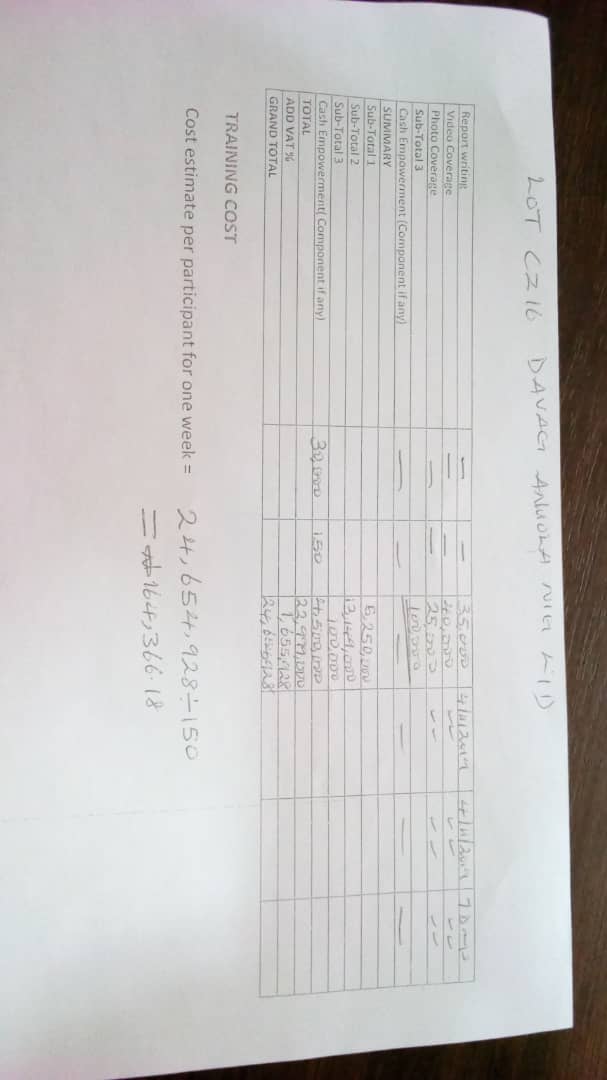 LOT CZ16 DAVAG ANUOLA NIG LTD
Report writing — — 35,000 4/11/2019 4/11/2019 7 Days
Video Coverage — — 40,000 " " "
Photo Coverage — — 25,000 " " "
Sub-Total 3 100,000
Cash Empowerment (Component if any) — — — — — —
SUMMARY
Sub-Total 1 5,250,000
Sub-Total 2 13,149,000
Sub-Total 3 100,000
Cash Empowerment( Component if any) 30,000 150 4,500,000
TOTAL 22,999,000
ADD VAT % 1,655,928
GRAND TOTAL
TRAINING COST
Cost estimate per participant for one week = 24,654,928÷150
= ₦164,366.18